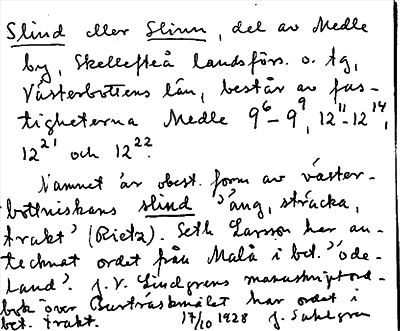 Slind eller Slinn, del av Medle
by, Skellefteå landsförs. o. tg,
Västerbottens län, består av fas-
tigheterna Medle 9⁶-9⁹, 12¹¹-12¹⁴,
12²¹ och 12²².
Namnet är obest. form av väster-
bottniskans slind 'äng, sträcka,
trakt' (Rietz). Seth Larsson har an-
tecknat ordet från Malå i bet. 'öde-
land'. J. V. Lindgrens manuskriptord-
bok över Burträskmålet har ordet i
bet. trakt. 17/10 1928 J. Sahlgren